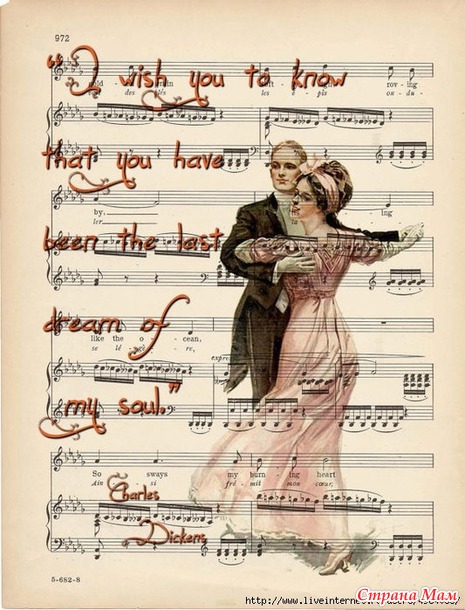 972
"I wish you to know
rov - ing
des plés les é - pis on - du -
that you have
by; ing
ler
been the last
dream of
like the o - cean,
se lé - gè - re,
my soul."
So sways my burn - ing heart
Ain - si fré - mit mon cœur,
Charles
Dickens
5-682-8
Страна Мам